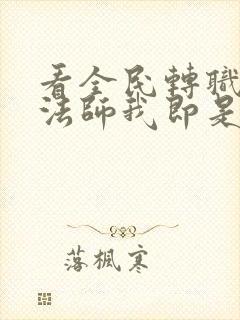 看全民轉職
法師我即是
落楓寒